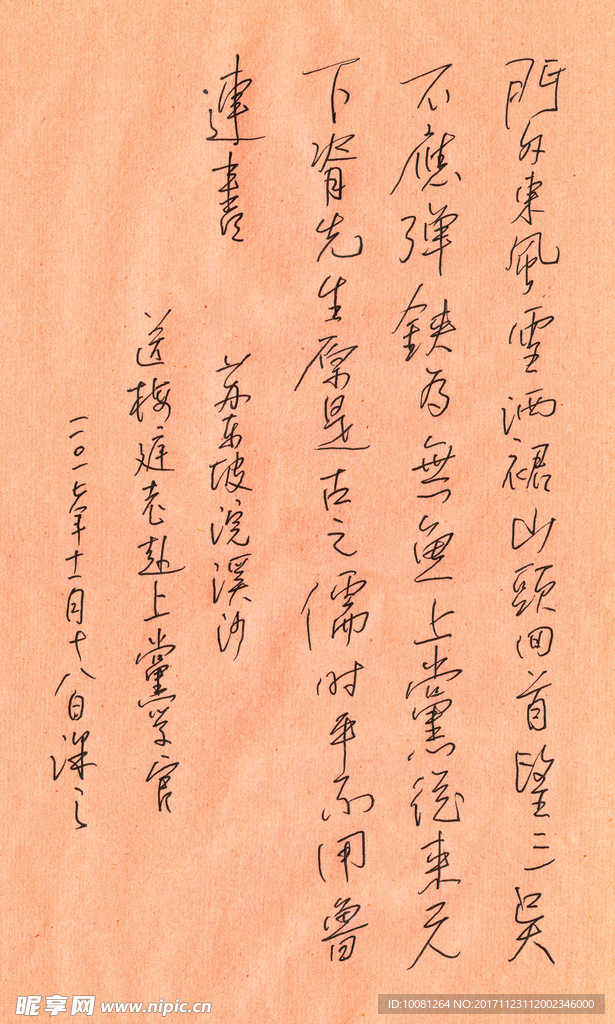 門外東風雪洒裾山頭回首望三吳
不應彈鋏為無魚上黨從來天
下脊先生原是古之儒时平不用魯
連書
苏东坡浣溪沙
送梅庭老赴上黨学官
二〇一七年十一月十八日深之
昵享网 www.nipic.cn
ID:10081264 NO:20171123112002346000